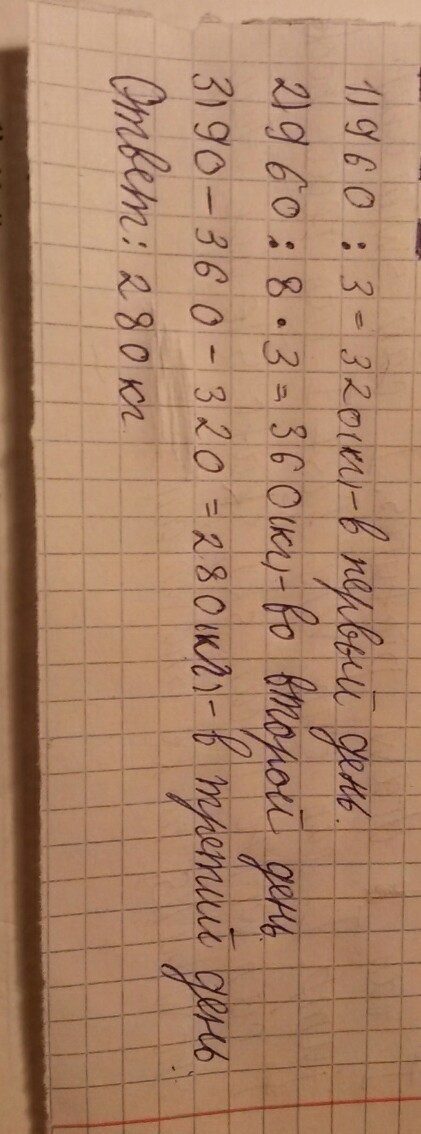 1) 960 : 3 = 320(кг) - в первый день.
2) 960 : 8 · 3 = 360(кг) - во второй день.
3) 90 - 360 - 320 = 280(кг) - в третий день.
Ответ: 280 кг